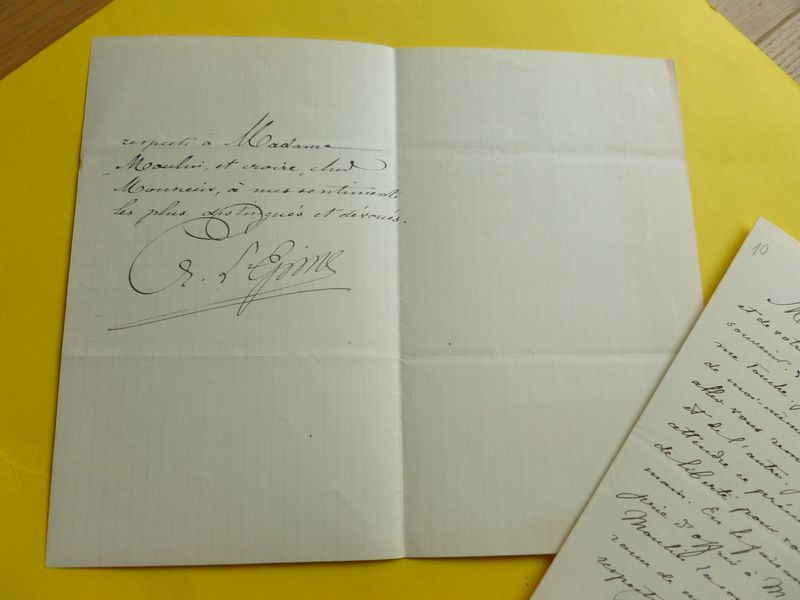 respects à Madame
Moulin, et croire, cher
Monsieur, à mes sentiments
les plus distingués et dévoués.
Ch. L'Epine
10
et de votre
souvenir.
me touche.
de moi-même
allez vous
et de l'autre.
attendre ce
de liberté pour
main. En le faisant
prie d'offrir à M
Moulin
de
respect